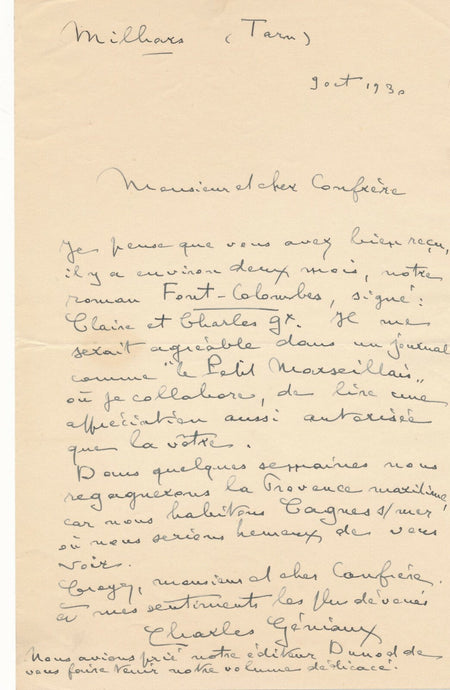 Milhars (Tarn)
9 oct 1930
Monsieur et cher Confrère
Je pense que vous avez bien reçu,
il y a environ deux mois, notre
roman Font-Colombes, signé :
Claire et Charles Gx. Il me
serait agréable dans un journal
comme "le Petit Marseillais"
où je collabore, de lire une
appréciation aussi autorisée
que la vôtre.
Dans quelques semaines nous
regagnerons la Provence maritime,
car nous habitons Cagnes s/mer
où nous serions heureux de vous
voir.
Croyez, monsieur et cher Confrère.
à mes sentiments les plus dévoués
Charles Géniaux
Nous avions prié notre éditeur Dunod de
vous faire tenir notre volume dédicacé.